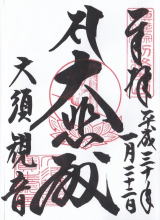 奉拝
平成三十年
一月二十一日
大悲殿
大須観音